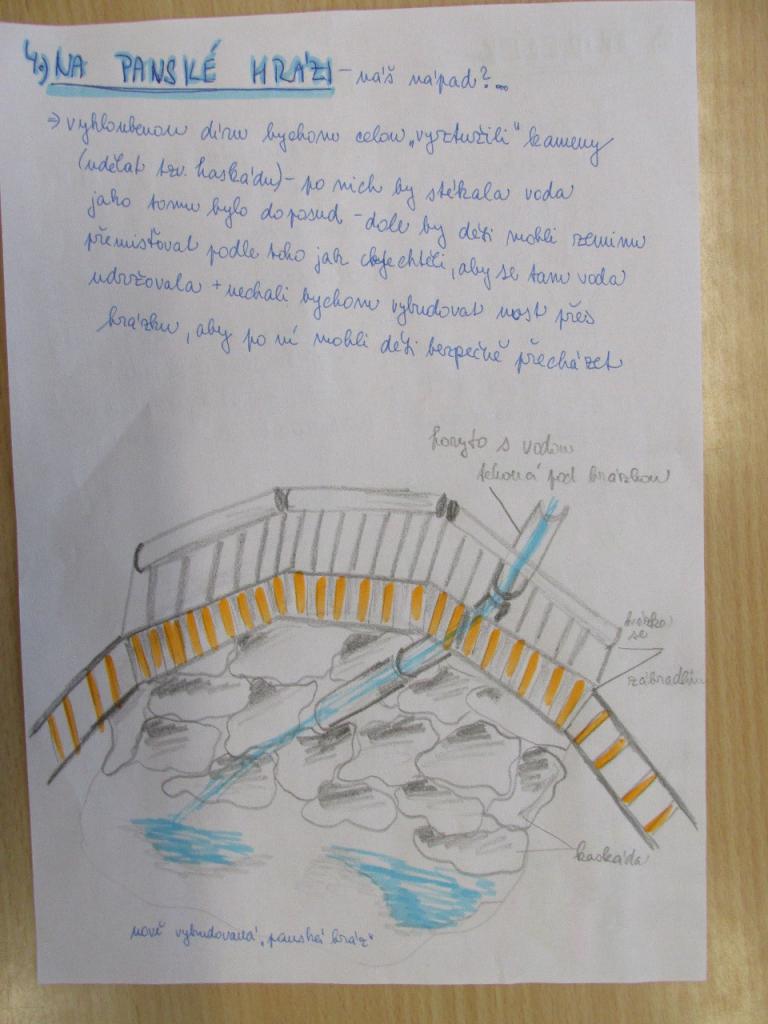 4.) NA PANSKÉ HRÁZI - náš nápad?...
→ vyhloubenou díru bychom celou „vyztužili" kameny
(udělat tzv. kaskádu) - po nich by stékala voda
jako tomu bylo doposud - dole by děti mohli zeminu
přemisťovat podle toho jak chtěli, aby se tam voda
udržovala + nechali bychom vybudovat most přes
hrázku, aby po ní mohli děti bezpečně přecházet
koryto s vodou
tekoucí pod hrázkou
hrázka
se
zábradlím
kaskáda
nově vybudovaná „panská hráz"